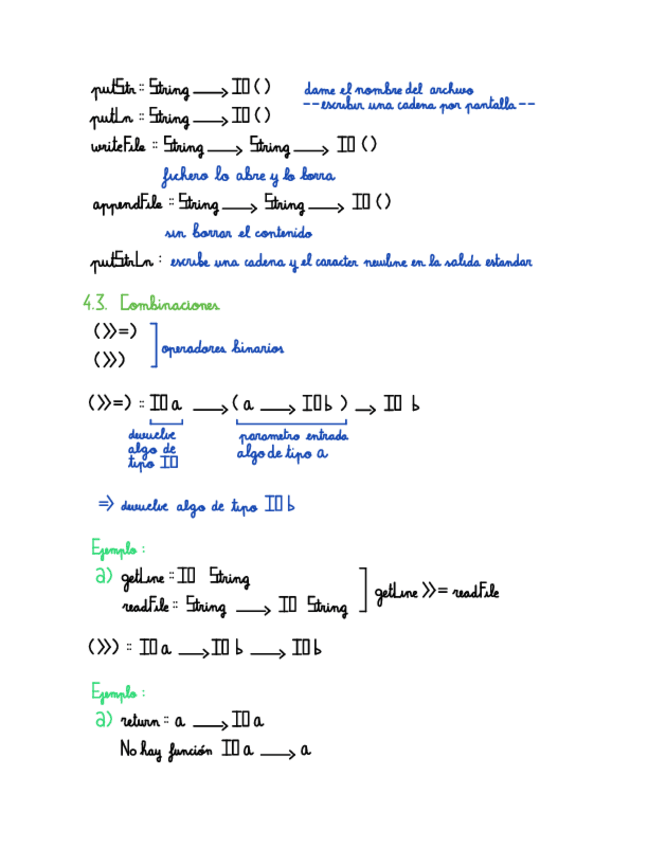 putStr :: String → IO ()
dame el nombre del archivo
--escribir una cadena por pantalla--
putLn :: String → IO ()
writeFile :: String → String → IO ()
fichero lo abre y lo borra
appendFile :: String → String → IO ()
sin borrar el contenido
putStrLn : escribe una cadena y el caracter newline en la salida estandar
4.3. Combinaciones
(>>=)
(>>)
operadores binarios
(>>=) :: IO a → ( a → IO b ) → IO b
devuelve
algo de
tipo IO
parametro entrada
algo de tipo a
⇒ devuelve algo de tipo IO b
Ejemplo :
a) getLine :: IO String
readFile :: String → IO String
getLine >>= readFile
(>>) :: IO a → IO b → IO b
Ejemplo :
a) return :: a → IO a
No hay función IO a → a